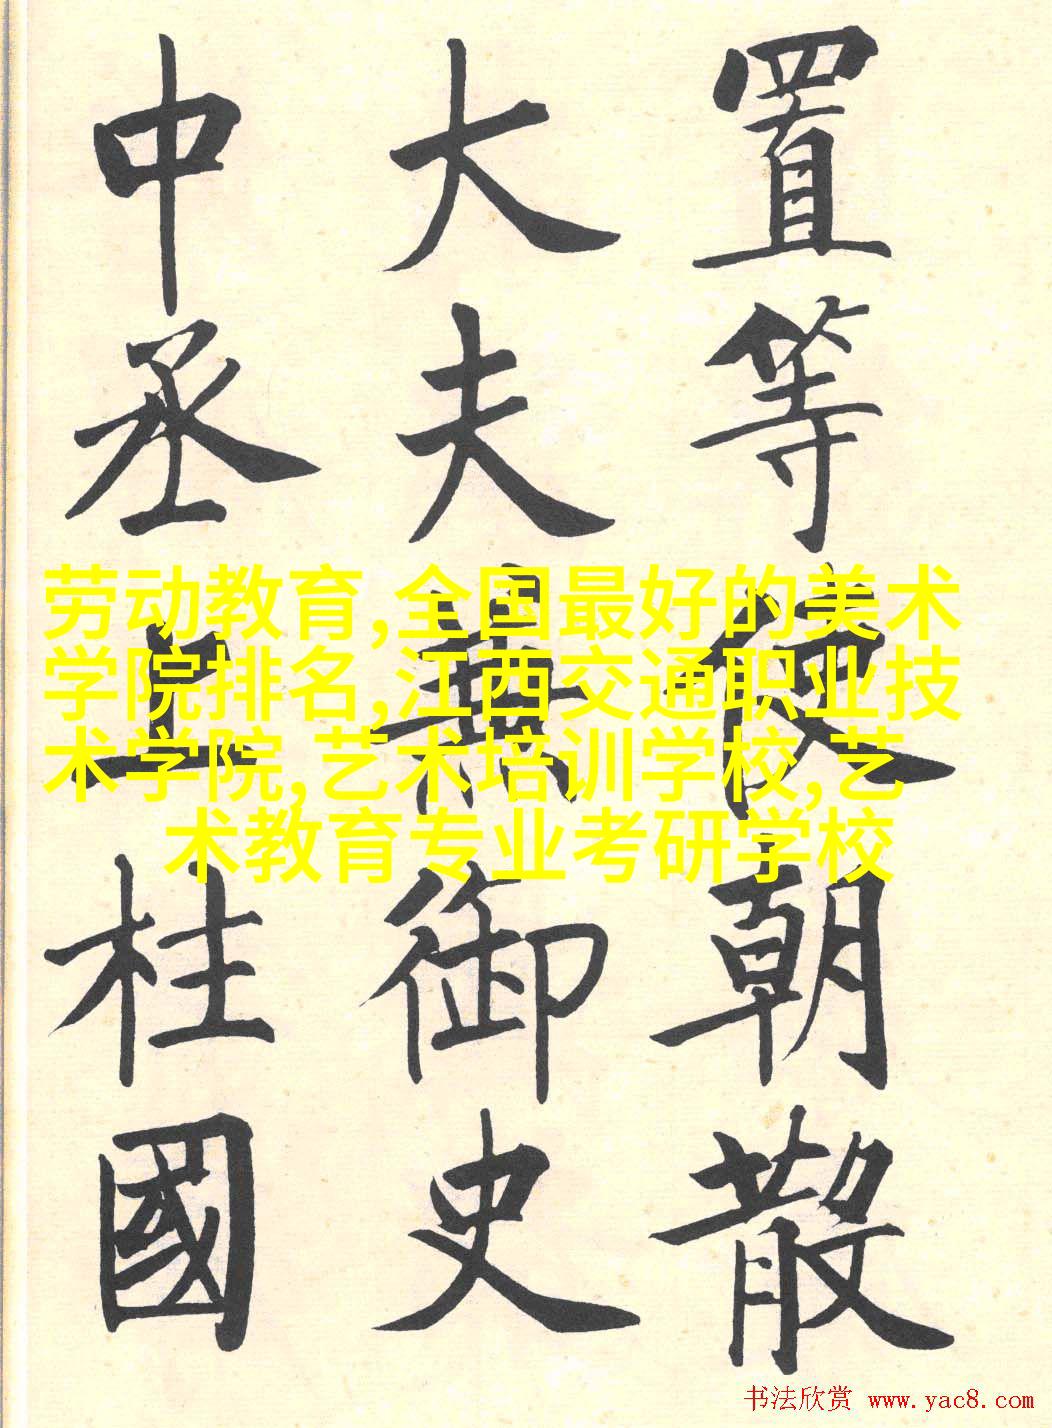 置等使朝散
大夫兼御史
中丞上柱國
劳动教育,全国最好的美术
学院排名,江西交通职业技
术学院,艺术培训学校,艺
术教育专业考研学校
书法欣赏 www.yac8.com